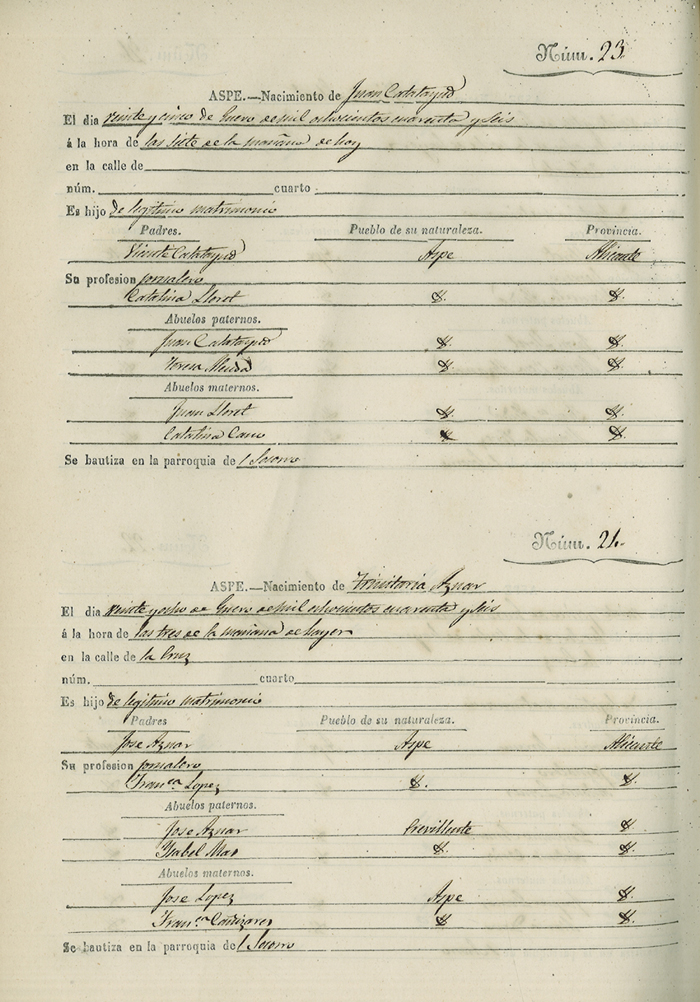 Núm. 23
ASPE.—Nacimiento de Juan Calatayud
El dia veinte y cinco de Enero de mil ochocientos cuarenta y seis
á la hora de las siete de la mañana de hoy
en la calle de
núm. cuarto
Es hijo de legitimo matrimonio
Padres. Pueblo de su naturaleza. Provincia.
Vicente Calatayud Aspe Alicante
Su profesion jornalero
Catalina Lloret &. &.
Abuelos paternos.
Juan Calatayud &. &.
Teresa &. &.
Abuelos maternos.
Juan Lloret &. &.
Catalina Cano &. &.
Se bautiza en la parroquia del Socorro
Núm. 24.
ASPE.—Nacimiento de Trinitaria Aznar
El dia veinte y ocho de Enero de mil ochocientos cuarenta y seis
á la hora de las tres de la mañana de hayer
en la calle de la Cruz
núm. cuarto
Es hijo de legitimo matrimonio
Padres Pueblo de su naturaleza. Provincia.
Jose Aznar Aspe Alicante
Su profesion jornalero
Fran.ca Lopez &. &.
Abuelos paternos.
Jose Aznar Crevillente &.
Ysabel Mas &. &.
Abuelos maternos.
Jose Lopez Aspe &.
Fran.ca Cañizares &. &.
Se bautiza en la parroquia del Socorro